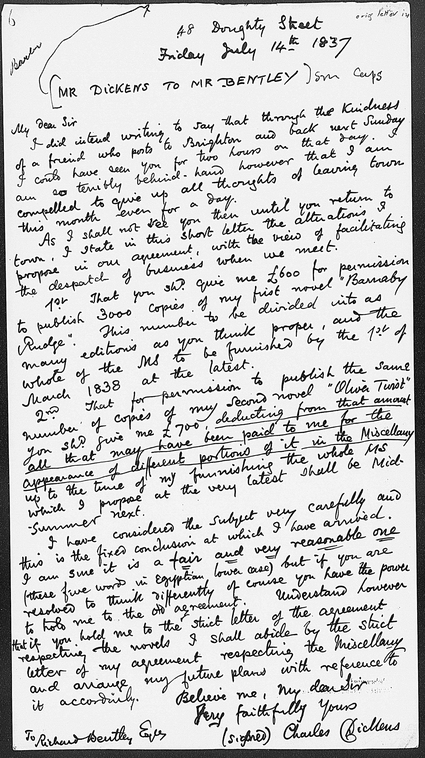 48 Doughty Street
orig letter in
Friday July 14th 1837
Barber
[MR DICKENS TO MR BENTLEY] Sm Caps
My dear Sir
I did intend writing to say that through the kindness
of a friend who posts to Brighton and back next Sunday
I could have seen you for two hours on that day. I
am so terribly behind-hand however that I am
compelled to give up all thoughts of leaving town
this month even for a day.
As I shall not see you then until you return to
town, I state in this short letter the alterations I
propose in our agreement, with the view of facilitating
the despatch of business when we meet.
1st That you shd give me £600 for permission
to publish 3000 copies of my first novel "Barnaby
Rudge". This number to be divided into as
many editions as you think proper, and the
whole of the MS to be furnished by the 1st of
March 1838 at the latest.
2nd That for permission to publish the same
number of copies of my second novel "Oliver Twist"
you shd give me £700, deducting from that amount
all that may have been paid to me for the
appearance of different portions of it in the Miscellany
up to the time of my furnishing the whole MS
which I propose at the very latest shall be Mid-
-summer next.
I have considered the subject very carefully and
this is the fixed conclusion at which I have arrived.
I am sure it is a fair and very reasonable one
(these five word in egyptian, lower case) but if you are
resolved to think differently of course you have the power
to hold me to the old agreement. Understand however
that if you hold me to the strict letter of the agreement
respecting the novels I shall abide by the strict
letter of my agreement respecting the Miscellany
and arrange my future plans with reference to
it accordingly.
Believe me, my dear Sir
Very faithfully yours
(signed) Charles Dickens
To Richard Bentley Esqre